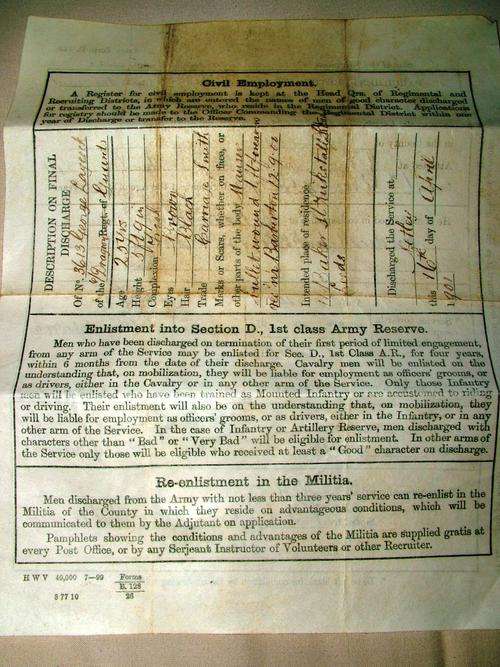 Civil Employment.
A Register for civil employment is kept at the Head Qrs. of Regimental and
Recruiting Districts, in which are entered the names of men of good character discharged
or transferred to the Army Reserve, who reside in the Regimental District. Applications
for registry should be made to the Officer Commanding the Regimental District within one
year of Discharge or transfer to the Reserve.
DESCRIPTION ON FINAL
DISCHARGE
Of No 3613 George
of the Regt. of
Age
Height
Complexion
Eyes Brown
Hair Black
Trade Carriage Smith
Marks or Scars, whether on face, or
other parts of the body
Bullet wound
near
Intended place of residence
Leeds
Discharged the Service at
Netley
this 16th day of April
1901
Enlistment into Section D., 1st class Army Reserve.
Men who have been discharged on termination of their first period of limited engagement,
from any arm of the Service may be enlisted for Sec. D., 1st Class A.R., for four years,
within 6 months from the date of their discharge. Cavalry men will be enlisted on the
understanding that, on mobilization, they will be liable for employment as officers' grooms, or
as drivers, either in the Cavalry or in any other arm of the Service. Only those Infantry
men will be enlisted who have been trained as Mounted Infantry or are accustomed to riding
or driving. Their enlistment will also be on the understanding that, on mobilization, they
will be liable for employment as officers' grooms, or as drivers, either in the Infantry, or in any
other arm of the Service. In the case of Infantry or Artillery Reserve, men discharged with
characters other than "Bad" or "Very Bad" will be eligible for enlistment. In other arms of
the Service only those will be eligible who received at least a "Good" character on discharge.
Re-enlistment in the Militia.
Men discharged from the Army with not less than three years' service can re-enlist in the
Militia of the County in which they reside on advantageous conditions, which will be
communicated to them by the Adjutant on application.
Pamphlets showing the conditions and advantages of the Militia are supplied gratis at
every Post Office, or by any Serjeant Instructor of Volunteers or other Recruiter.
H W V 40,000 7—99 Forms
B. 128
S 77 10 26